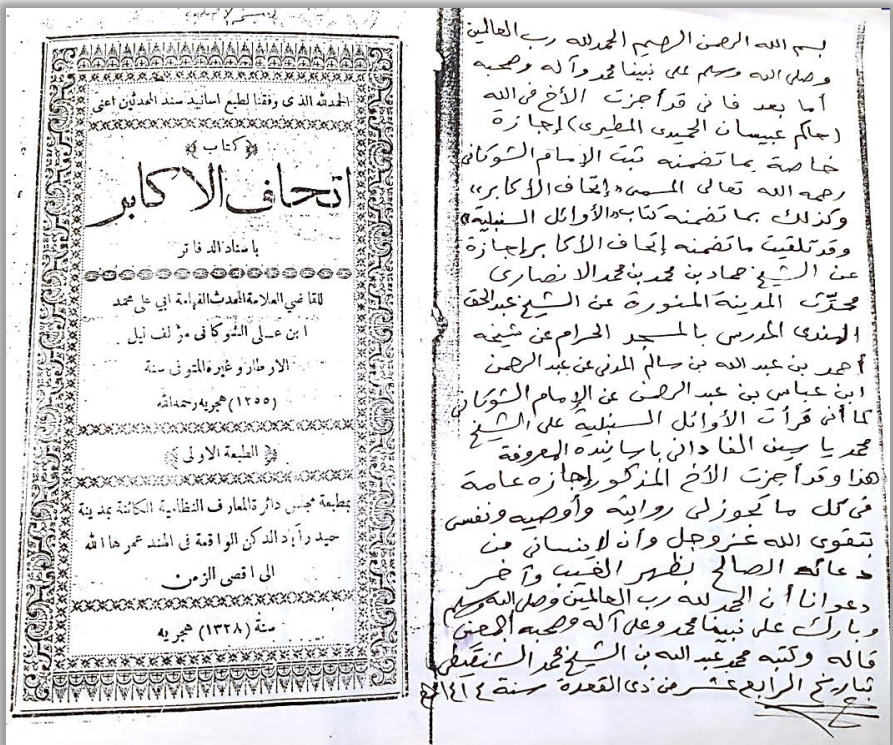 بسم الله الرحمن الرحيم الحمد لله رب العالمين
وصلى الله وسلم على نبينا محمد وآله وصحبه
أما بعد فاني قد أجزت الأخ في الله
(حاكم عبيسان الحميدي المطيري) إجازة
خاصة بما تضمنه ثبت الإمام الشوكاني
رحمه الله تعالى المسمى «إتحاف الأكابر»
وكذلك بما تضمنه كتاب «الأوائل السنبلية»
وقد تلقيت ما تضمنه إتحاف الأكابر إجازة
عن الشيخ حماد بن محمد بن محمد الانصاري
محدّث المدينة المنورة عن الشيخ عبد الحق
الهندي المدرس بالمسجد الحرام عن شيخه
أحمد بن عبد الله بن سالم المدني عن عبد الرحمن
ابن عباس بن عبد الرحمن عن الإمام الشوكاني
كما أني قرأت الأوائل السنبلية على الشيخ
محمد ياسين الفاداني بأسانيده المعروفة
هذا وقد أجزت الأخ المذكور إجازه عامة
في كل ما تجوز لي روايته وأوصيه ونفسي
بتقوى الله عز وجل وأن لا ينساني من
دعائه الصالح بظهر الغيب وآخر
دعوانا أن الحمد لله رب العالمين وصلى الله وسلم
وبارك على نبينا محمد وعلى آله وصحبه أجمعين
قاله وكتبه محمد عبد الله بن الشيخ محمد الشنقيطي
بتاريخ الرابع عشر من ذي القعدة سنة ١٤١٤هـ
الحمد لله الذى وفقنا لطبع اسانيد سند المحدثين اعنى
كتاب
اتحاف الاكابر
باسناد الدفاتر
للقاضي العلامة المحدث الفهامة ابي على محمد
ابن عسلى الشوكانى مؤلف نيل
الاوطار وغيره المتوفى سنة
(١٢٥٥) هجريه رحمه الله
الطبعة الاولى
بمطبعة مجلس دائرة المعارف النظامية الكائنة بمدينة
حيدرآباد الدكن الواقعة فى الهند عمرها الله
الى اقصى الزمن
سنة (١٣٢٨) هجريه